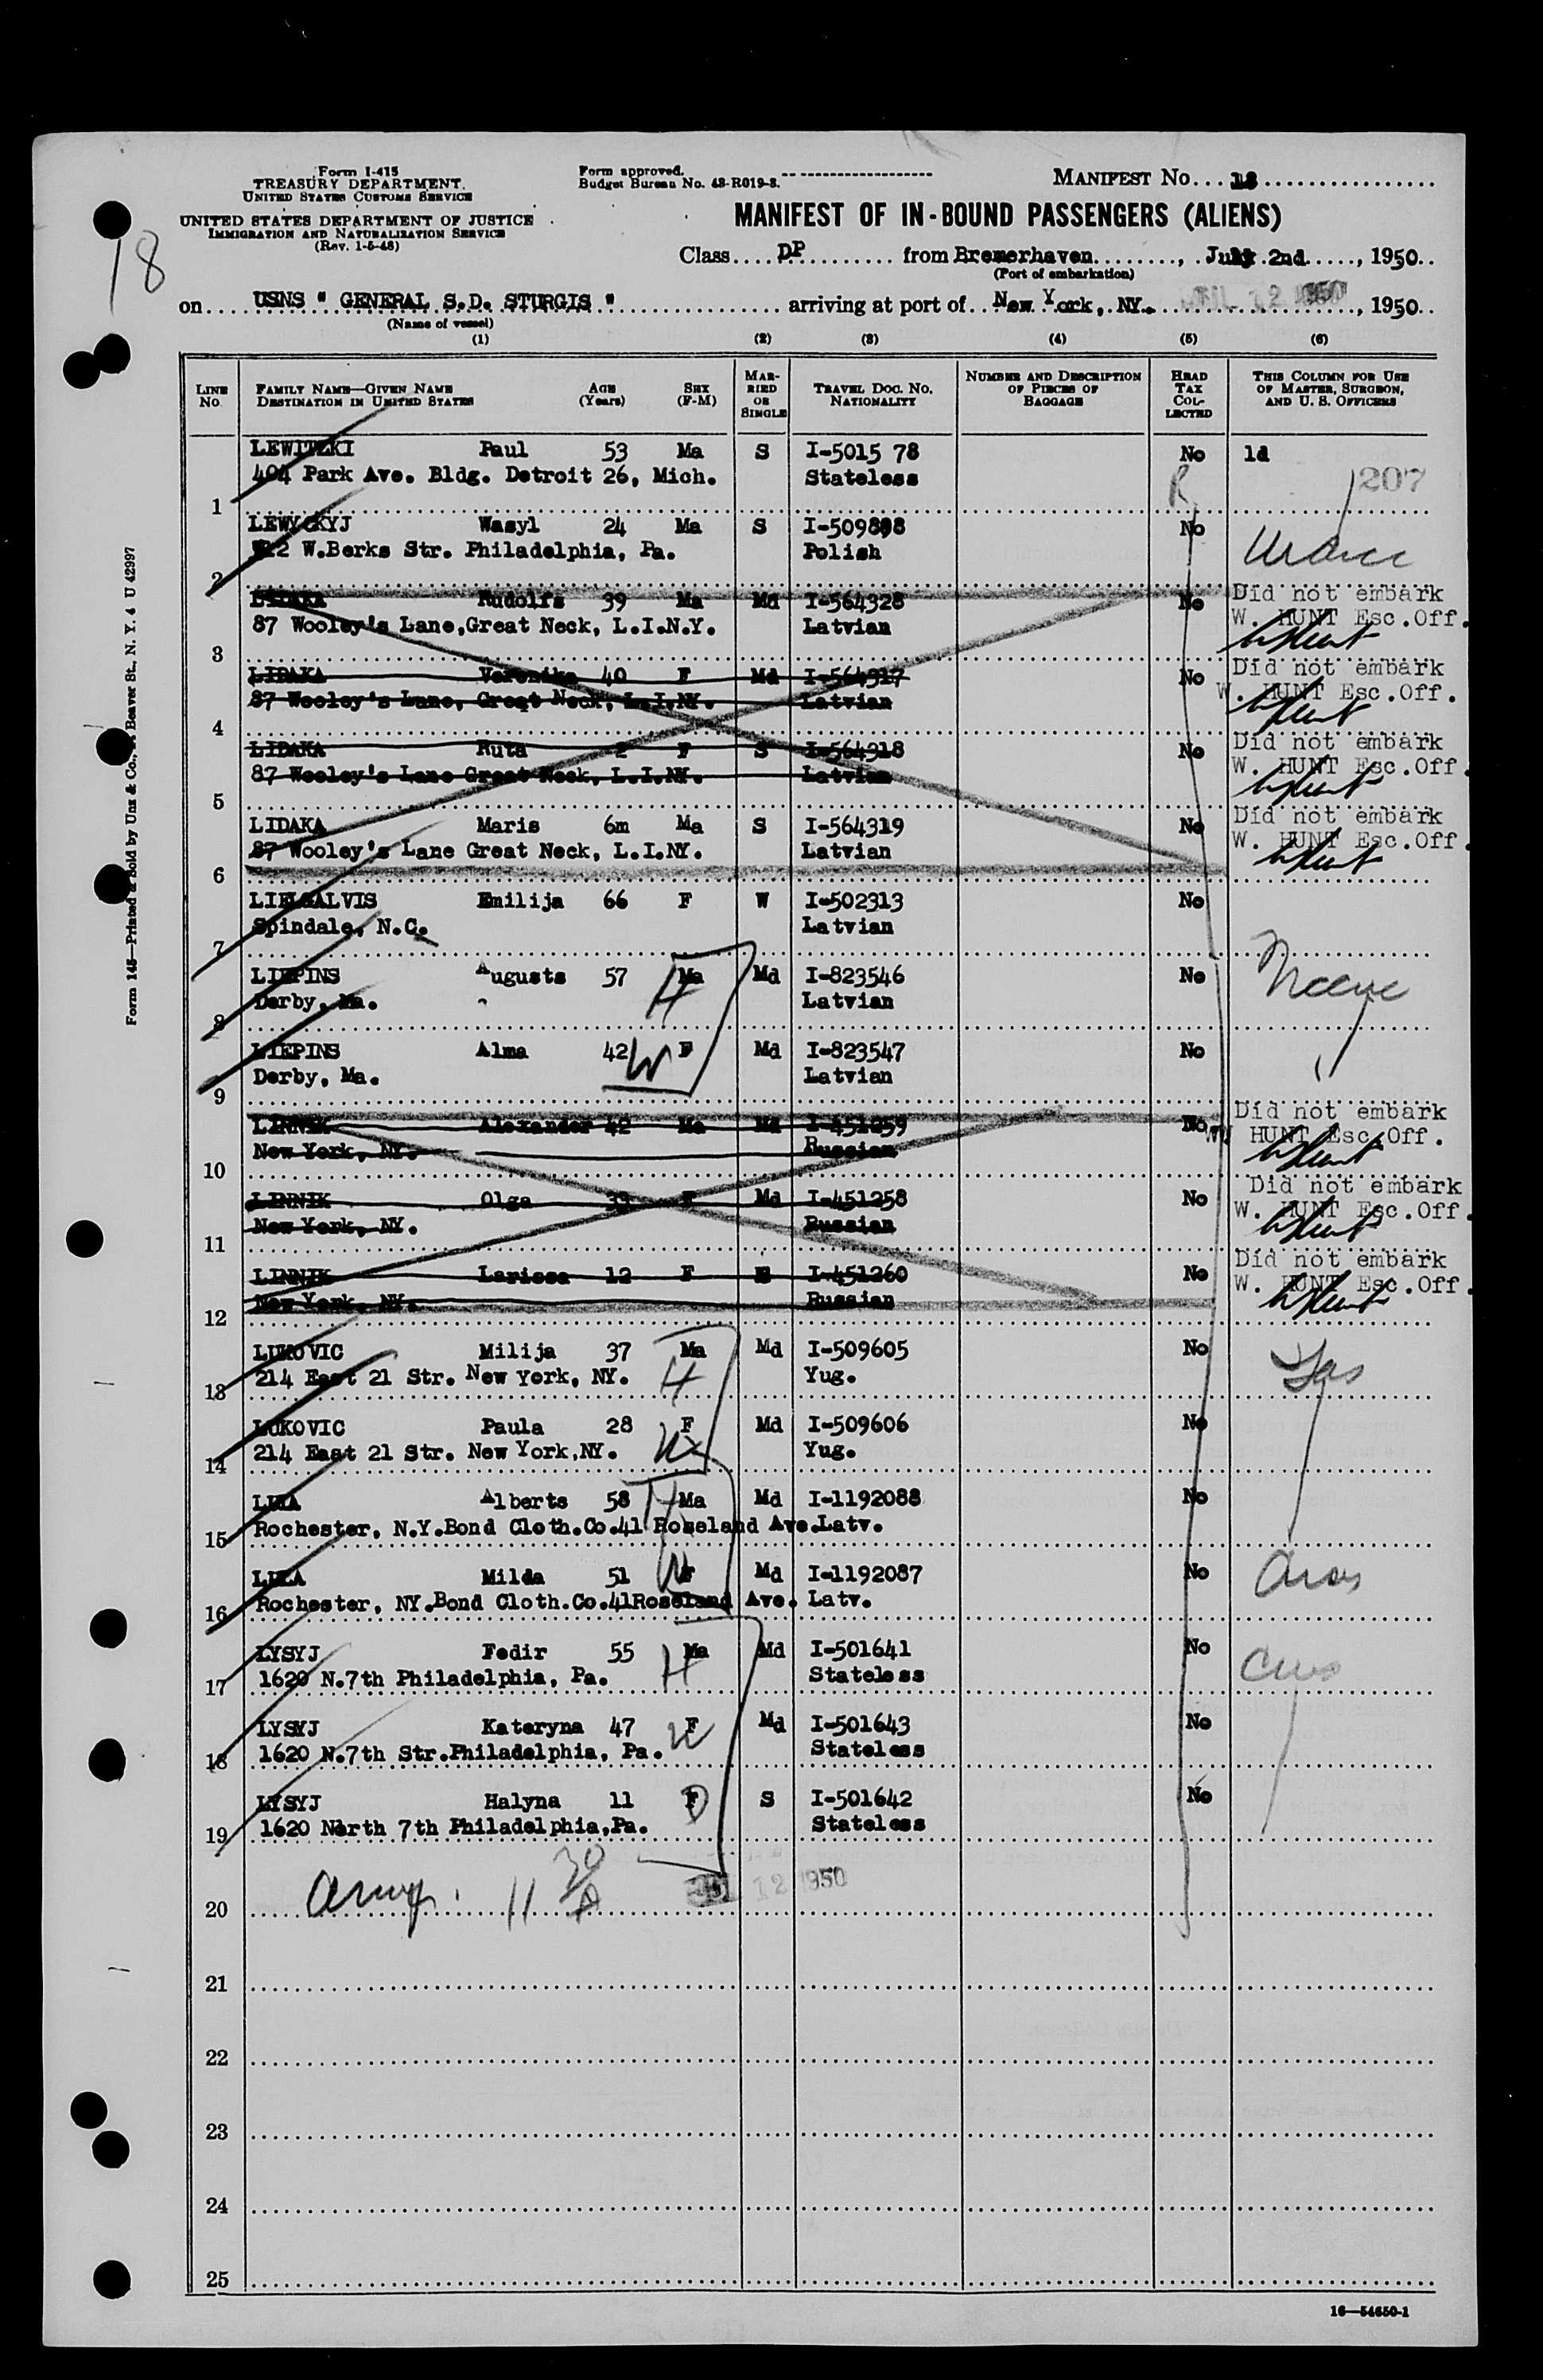 Form I-415
TREASURY DEPARTMENT
UNITED STATES CUSTOMS SERVICE
UNITED STATES DEPARTMENT OF JUSTICE
IMMIGRATION AND NATURALIZATION SERVICE
(Rev. 1-5-48)
Form approved.
Budget Bureau No. 43-R019-3.
MANIFEST NO. 18
MANIFEST OF IN-BOUND PASSENGERS (ALIENS)
18
Class DP from Bremerhaven, July 2nd, 1950
(Port of embarkation)
on USNS " GENERAL S.D. STURGIS " arriving at port of New York, NY. JUL 12 1950, 1950
(Name of vessel)
(1) (2) (3) (4) (5) (6)
LINE NO. FAMILY NAME—GIVEN NAME DESTINATION IN UNITED STATES AGE (Years) SEX (F-M) MARRIED OR SINGLE TRAVEL DOC. NO. NATIONALITY NUMBER AND DESCRIPTION OF PIECES OF BAGGAGE HEAD TAX COLLECTED THIS COLUMN FOR USE OF MASTER, SURGEON, AND U. S. OFFICERS
LEWITZKI Paul 53 Ma S I-5015 78 No 1d
404 Park Ave. Bldg. Detroit 26, Mich. Stateless R 207
1
LEWYCKYJ Wasyl 24 Ma S I-509898 No
W.Berks Str. Philadelphia, Pa. Polish
2
LIDAKA Rudolfs 39 Ma Md I-564328 No Did not embark
87 Wooley's Lane,Great Neck, L.I.N.Y. Latvian W. HUNT Esc.Off.
3
LIDAKA Veronika 40 F Md I-564317 No Did not embark
87 Wooley's Lane, Great Neck, L.I.NY. Latvian W. HUNT Esc.Off.
4
LIDAKA Ruta 2 F S I-564318 No Did not embark
87 Wooley's Lane Great Neck, L.I.NY. Latvian W. HUNT Esc.Off.
5
LIDAKA Maris 6m Ma S I-564319 No Did not embark
87 Wooley's Lane Great Neck, L.I.NY. Latvian W. HUNT Esc.Off.
6
LIELGALVIS Emilija 66 F W I-502313 No
Spindale, N.C. Latvian
7
LIEPINS Augusts 57 Ma Md I-823546 No
Derby, Ma. H Latvian
8
LIEPINS Alma 42 F Md I-823547 No
Derby, Ma. W Latvian
9
LINNIK Alexander 42 Ma Md I-451259 No Did not embark
New York, NY. Russian W HUNT Esc.Off.
10
LINNIK Olga 39 F Md I-451258 No Did not embark
New York, NY. Russian W. HUNT Esc.Off.
11
LINNIK Larissa 12 F S I-451260 No Did not embark
New York, NY. Russian W. HUNT Esc.Off.
12
LUKOVIC Milija 37 Ma Md I-509605 No
214 East 21 Str. New York, NY. H Yug.
13
LUKOVIC Paula 28 F Md I-509606 No
214 East 21 Str. New York,NY. Yug.
14
Alberts 58 H Ma Md I-1192088 No
Rochester, N.Y.Bond Cloth.Co.41 Roseland Ave.Latv.
15
Milda 51 W F Md I-1192087 No
Rochester, NY.Bond Cloth.Co.41Roseland Ave. Latv.
16
LYSYJ Fedir 55 Ma Md I-501641 No
1620 N.7th Philadelphia, Pa. H Stateless
17
LYSYJ Kateryna 47 F Md I-501643 No
1620 N.7th Str.Philadelphia, Pa. W Stateless
18
LYSYJ Halyna 11 F D S I-501642 No
1620 North 7th Philadelphia,Pa. Stateless
19
11 30 A JUL 12 1950
20
21
22
23
24
25
16—54650-1
Form 145—Printed & Sold by Unz & Co., Beaver St., N. Y. 4 U 42997